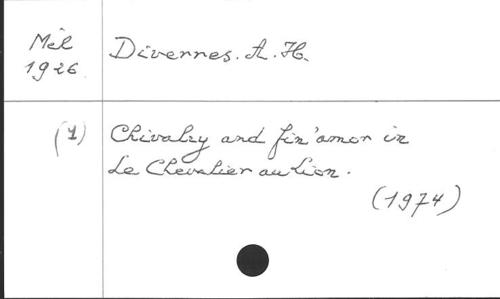 Mél
1926
Diverres. A. H.
(1)
Chivalry and fin'amor in
Le Chevalier au Lion.
(1974)